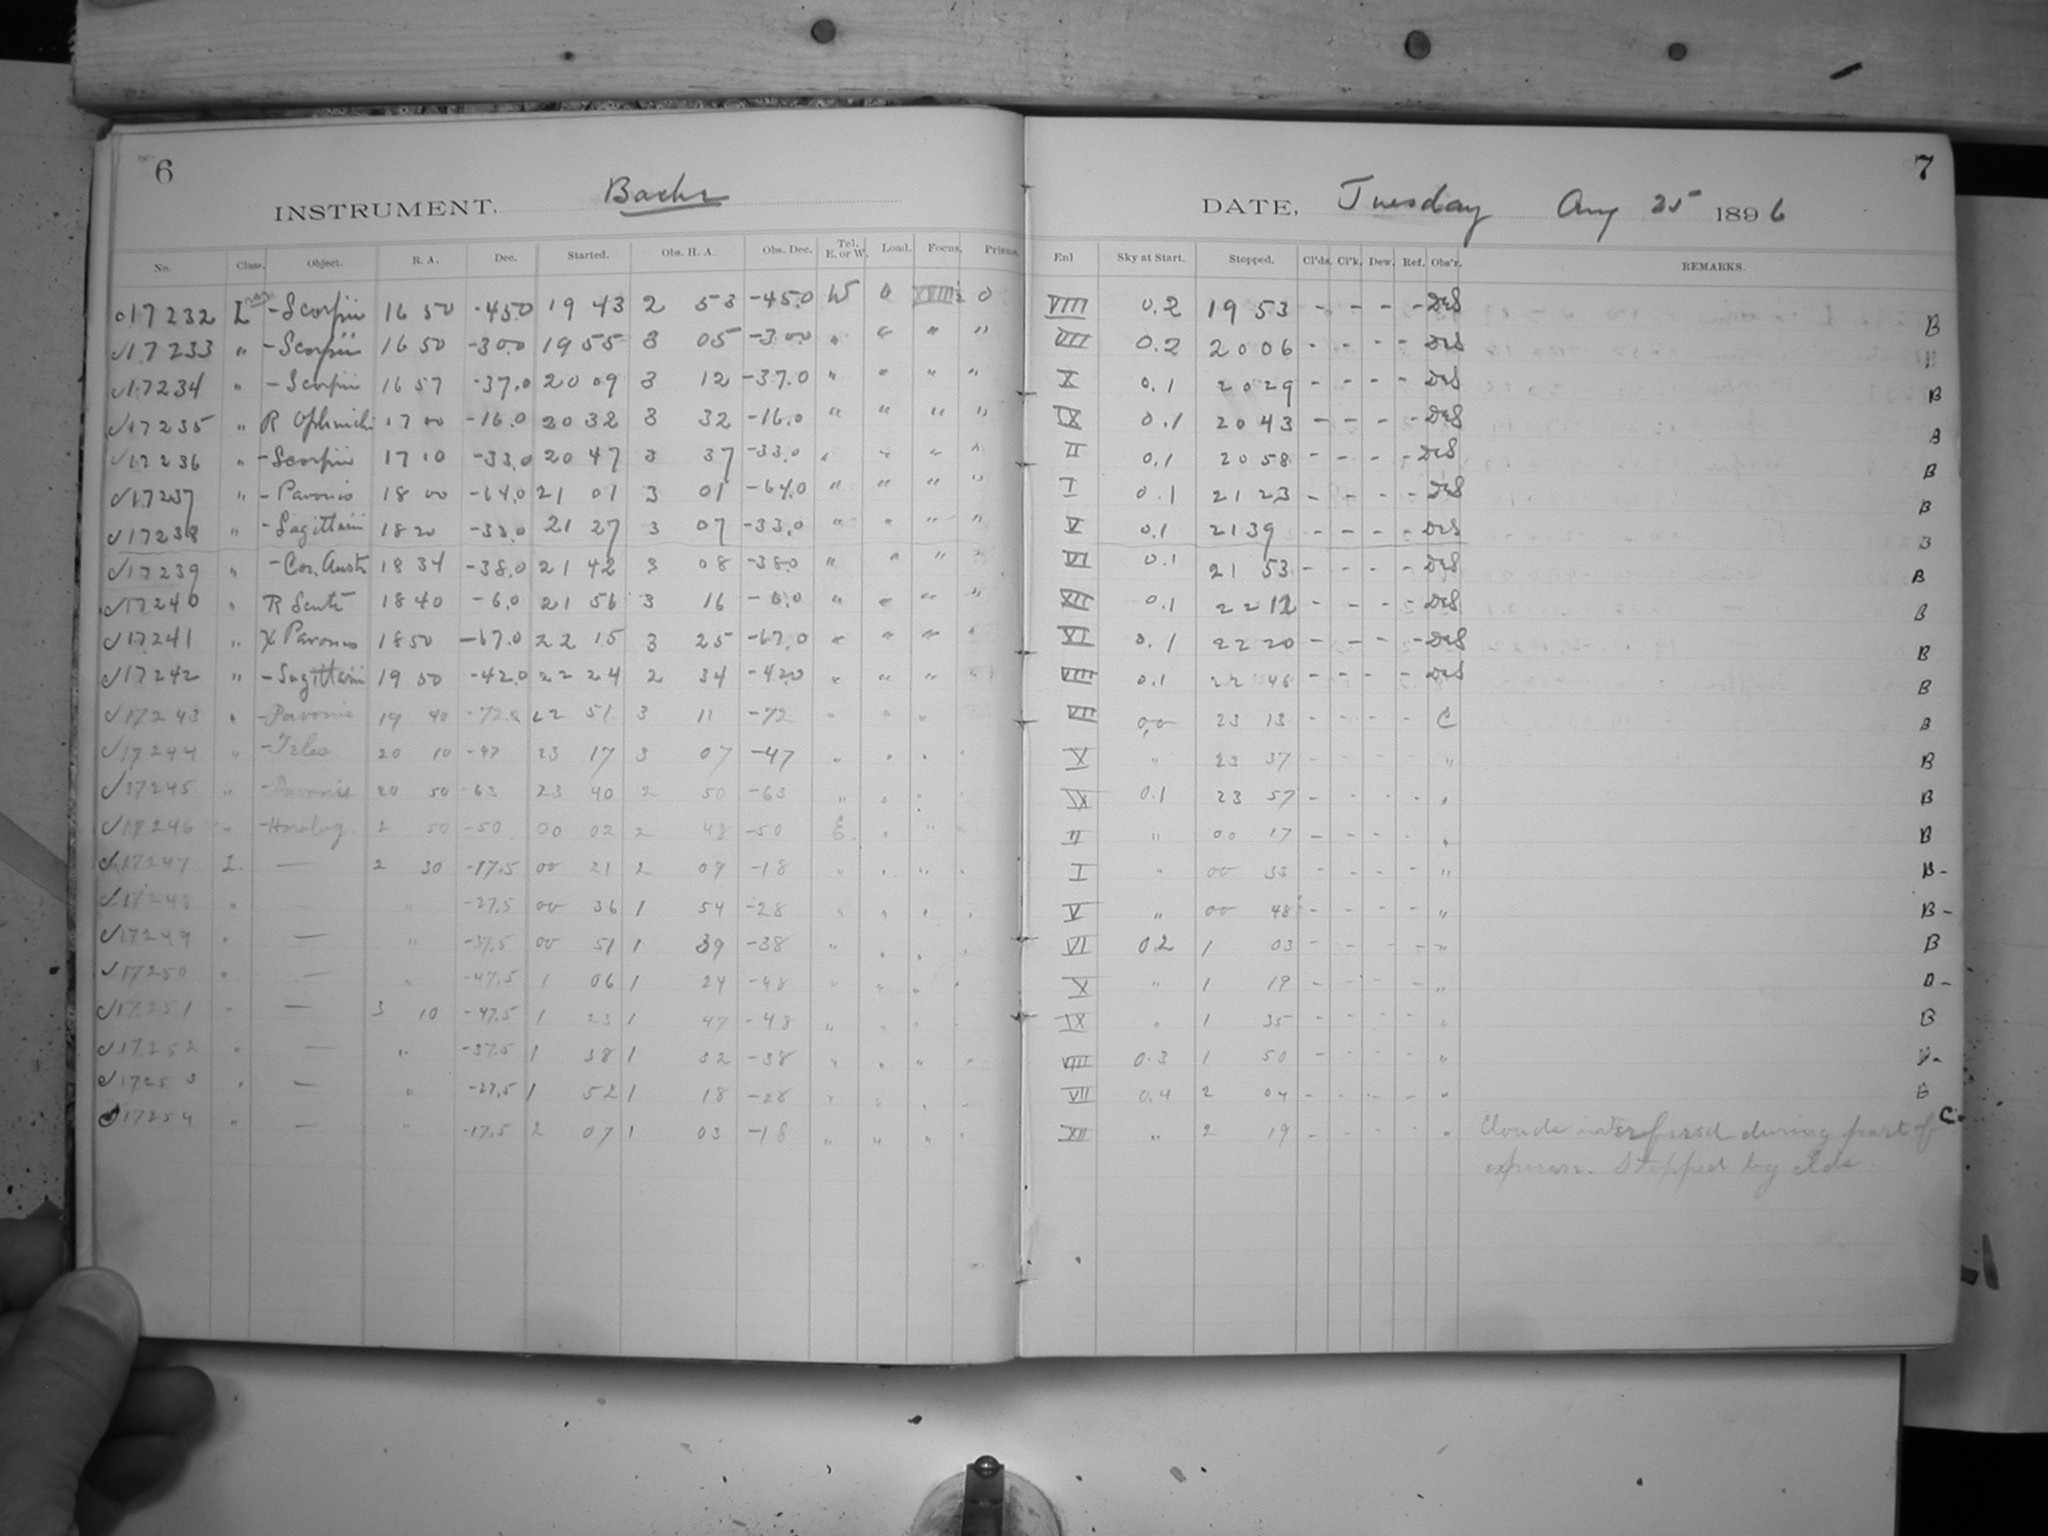 6
7
INSTRUMENT, Bache
DATE, Tuesday Aug 25 1896
No. Class. Object. R. A. Dec. Started. Obs. H. A. Obs. Dec. Tel. E. or W. Load. Focus. Prisms. Enl Sky at Start. Stopped. Cl'ds. Cl'k. Dew. Ref. Obs'r. REMARKS.
17232 L - Scorpii 16 50 -45.0 19 43 2 53 -45.0 W 0 0 VIII 0.2 19 53 - - - - DeS B
17233 " - Scorpii 16 50 -30.0 19 55 3 05 -30.0 " " " " VIII 0.2 20 06 - - - - DeS B
17234 " - Scorpii 16 57 -37.0 20 09 3 12 -37.0 " " " " X 0.1 20 29 - - - - DeS B
17235 " R Ophiuchi 17 00 -16.0 20 32 3 32 -16.0 " " " " IX 0.1 20 43 - - - - DeS B
17236 " - Scorpii 17 10 -33.0 20 47 3 37 -33.0 " " " " II 0.1 20 58 - - - - DeS B
17237 " - Pavonis 18 00 -64.0 21 01 3 01 -64.0 " " " " I 0.1 21 23 - - - - DeS B
17238 " - Sagittarii 18 20 -33.0 21 27 3 07 -33.0 " " " " V 0.1 21 39 - - - - DeS B
17239 " - Cor. Austr 18 34 -38.0 21 42 3 08 -38.0 " " " " VI 0.1 21 53 - - - - DeS B
17240 " R Scuti 18 40 -6.0 21 56 3 16 -6.0 " " " " XII 0.1 22 12 - - - - DeS B
17241 " X Pavonis 18 50 -67.0 22 15 3 25 -67.0 " " " " VI 0.1 22 20 - - - - DeS B
17242 " - Sagittarii 19 50 -42.0 22 24 2 34 -42.0 " " " " VIII 0.1 22 48 - - - - DeS B
17243 " - Pavonis 19 40 -72.0 22 51 3 11 -72 " " " VII 0,0 23 13 - - - - C B
17244 " - Teles. 20 10 -47 23 17 3 07 -47 " " " " X " 23 37 - - - - " B
17245 " - Pavonis 20 50 -63 23 40 2 50 -63 " " " " IX 0.1 23 57 - - - - " B
17246 " - Horolog. 2 50 -50 00 02 2 48 -50 E " " II " 00 17 - - - - " B
17247 L. — 2 30 -17.5 00 21 2 09 -18 " " " " I " 00 33 - - - - " B -
17248 " — " -27.5 00 36 1 54 -28 " " " " V " 00 48 - - - - " B -
17249 " — " -37.5 00 51 1 39 -38 " " " " VI 0.2 1 03 - - - - " B
17250 " — " -47.5 1 06 1 24 -48 " " " " X " 1 19 - - - - "
17251 " — 3 10 -47.5 1 23 1 47 -48 " " " " IX " 1 35 - - - - " B
17252 " — " -37.5 1 38 1 32 -38 " " " " VIII 0.3 1 50 - - - - "
17253 " — " -27.5 1 52 1 18 -28 " " " " VII 0.4 2 04 - - - - " B
17254 " — " -17.5 2 07 1 03 -18 " " " " XII " 2 19 - - - - " Clouds interfered during part of C -
exposure. Stopped by clds